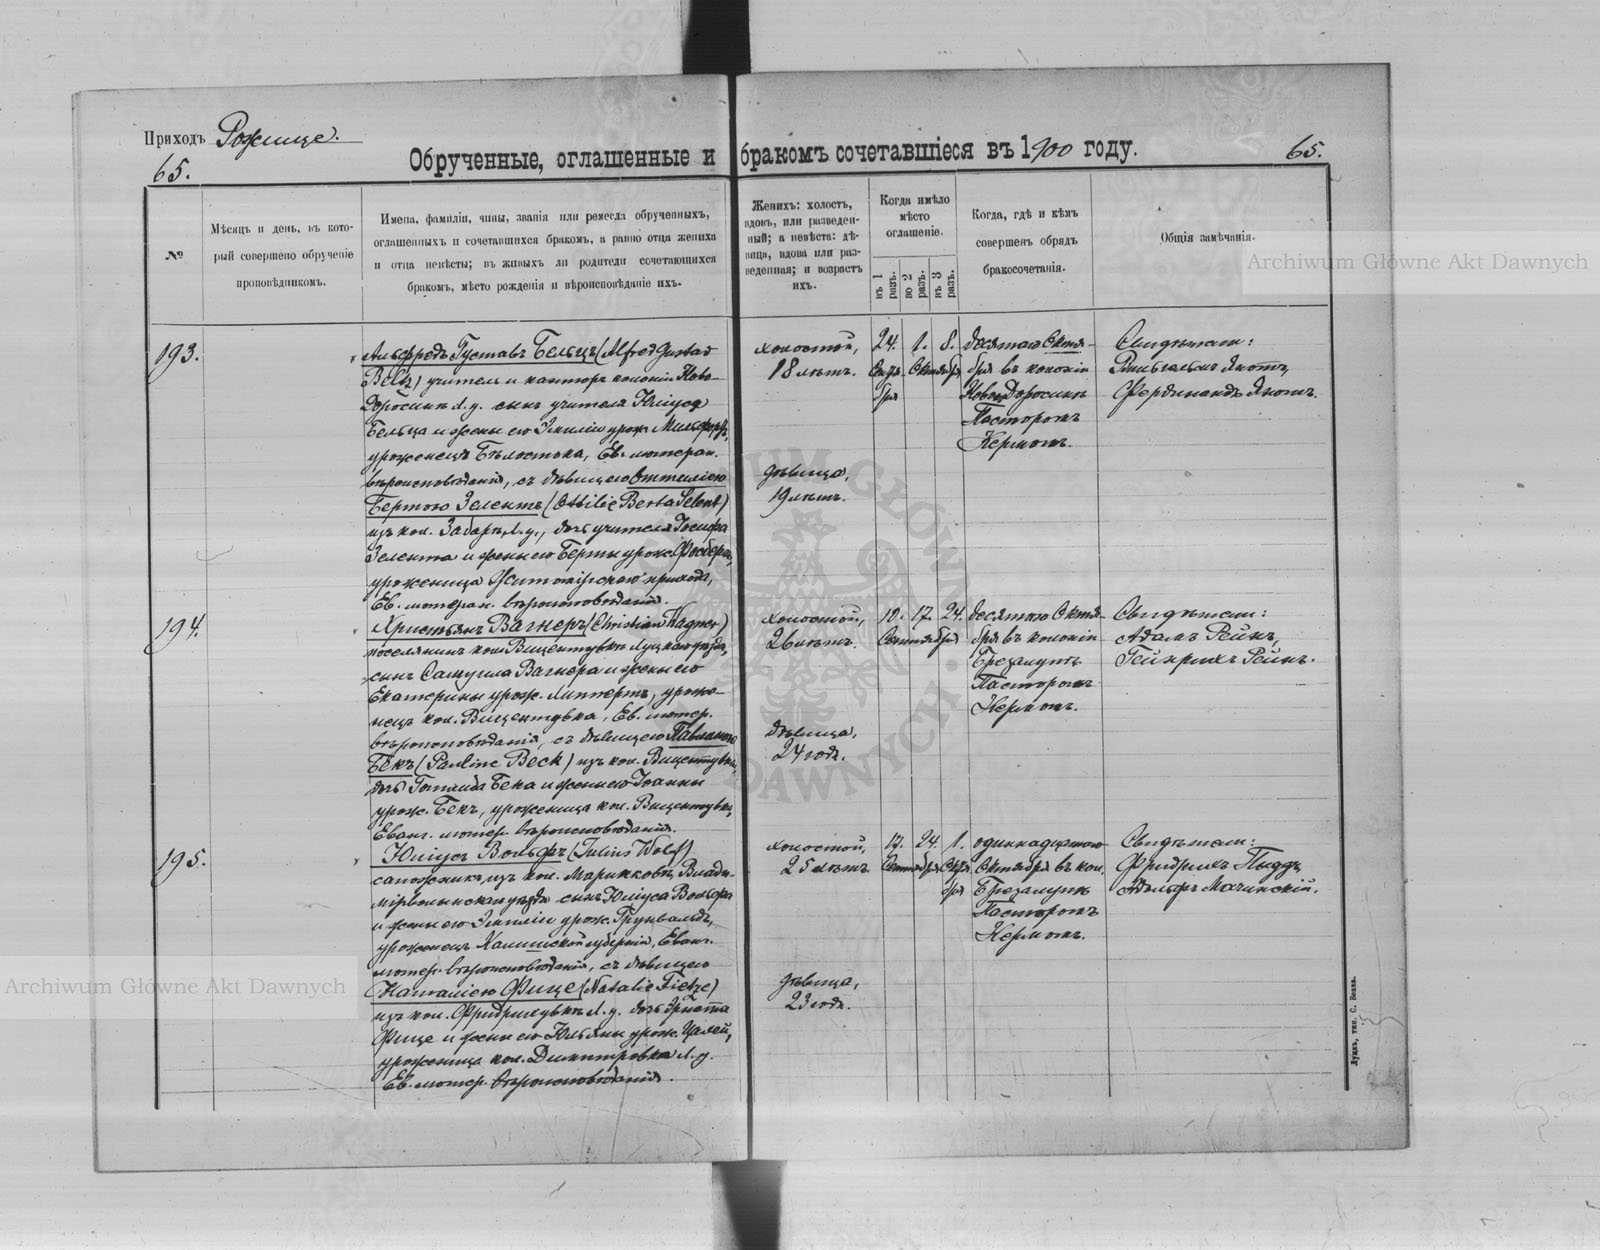 Приходъ Рожище.
65.
Обрученные, оглашенные и бракомъ сочетавшіеся въ 1900 году.
65.
№
Мѣсяцъ и день, въ кото-
рый совершено обрученіе
проповѣдникомъ.
Имена, фамиліи, чины, званія или ремесла обрученныхъ,
оглашенныхъ и сочетавшихся бракомъ, а равно отца жениха
и отца невѣсты; въ живыхъ ли родители сочетающихся
бракомъ, мѣсто рожденія и вѣроисповѣданіе ихъ.
Женихъ: холостъ,
вдовъ, или разведен-
ный; а невѣста: дѣ-
вица, вдова или раз-
веденная; и возрастъ
ихъ.
Когда имѣло
мѣсто
оглашеніе.
въ 1 разъ.
во 2 разъ.
въ 3 разъ.
Когда, гдѣ и кѣмъ
совершенъ обрядъ
бракосочетанія.
Общія замѣчанія.
Archiwum Główne Akt Dawnych
193.
Альфредъ Густавъ Бельцъ (Alfred Gustav
Belz) учитель и канторъ колоніи Ново-
Доросинъ Л. у. сынъ учителя Юліуса
Бельца и жены его Эмиліи урож.
уроженецъ Бѣлостока, Ев. лютеран.
вѣроисповѣданія, съ дѣвицею Оттиліею
Бертою Зелентъ (Ottilie Berta Selent)
изъ кол. Л. у., дочь учителя Іосифа
Зелента и жены его Берты урож.
уроженица Житомірскаго прихода,
Ев. лютеран. вѣроисповѣданія.
холостой,
18 лѣтъ.
дѣвица,
19 лѣтъ.
24. 1. 8.
Сентя- Октября
бря
десятаго Октя-
бря въ колоніи
Новый Доросинъ
Пасторомъ
Кермомъ.
Свидѣтели:
Вильгельмъ Яютъ,
Фердинандъ Яютъ.
194.
Христьянъ Вагнеръ (Christian Wagner)
поселянинъ кол. Вицентувка Луцкаго уѣзда,
сынъ Самуила Вагнера и жены его
Екатерины урож. Липпертъ, уроже-
нецъ кол. Вицентувка, Ев. лютер.
вѣроисповѣданія, съ дѣвицею Павлиною
Бекъ (Pauline Beck) изъ кол. Вицентувки,
дочь Готлиба Бека и жены его Іоанны
урож. Бекъ, уроженица кол. Вицентувка,
Еванг. лютер. вѣроисповѣданія.
холостой,
26 лѣтъ.
дѣвица,
24 года.
10. 17. 24.
Сентября
десятаго Октя-
бря въ колоніи
Брезалупъ
Пасторомъ
Кермомъ.
Свидѣтели:
Адамъ Рейнъ,
Гейнрихъ Рейнъ.
195.
Юліусъ Вольфъ (Julius Wolf)
сапожникъ, изъ кол. Марьяновка, Влади-
мірволынскаго уѣзда сынъ Юліуса Вольфа
и жены его Эмиліи урож. Грунвальдъ,
уроженецъ Калишской губерніи, Еванг.
лютер. вѣроисповѣданія, съ дѣвицею
Наталіею Фице (Natalie Fietze)
изъ кол. Фридриховка Л. у. дочь
Фице и жены его Юльяны урож. Цалей,
уроженица кол. Димитровка Л. у.
Ев. лютер. вѣроисповѣданія.
холостой,
25 лѣтъ
дѣвица,
23 года.
17. 24. 1.
Сентября Октя-
бря
одиннадцатаго
Октября въ кол.
Брезалупъ
Пасторомъ
Кермомъ.
Свидѣтели:
Фридрихъ Пиддъ,
Адольфъ Мачинскій.
Archiwum Główne Akt Dawnych
Луцкъ, тип. С. Бокка.
ARCHIWUM GŁÓWNE AKT DAWNYCH